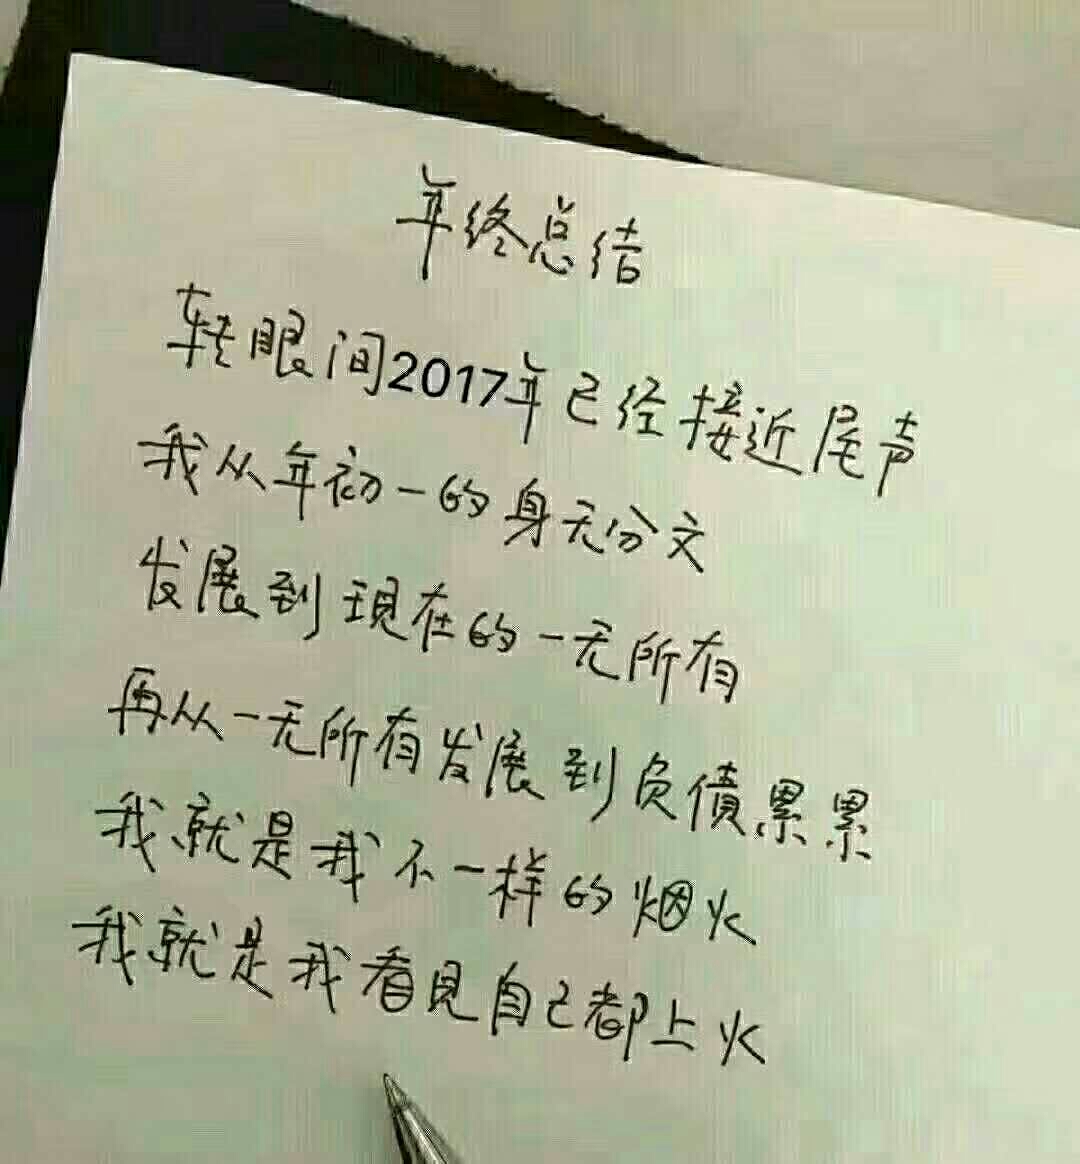 年终总结
转眼间2017年已经接近尾声
我从年初一的身无分文
发展到现在的一无所有
再从一无所有发展到负债累累
我就是我不一样的烟火
我就是我看见自己都上火